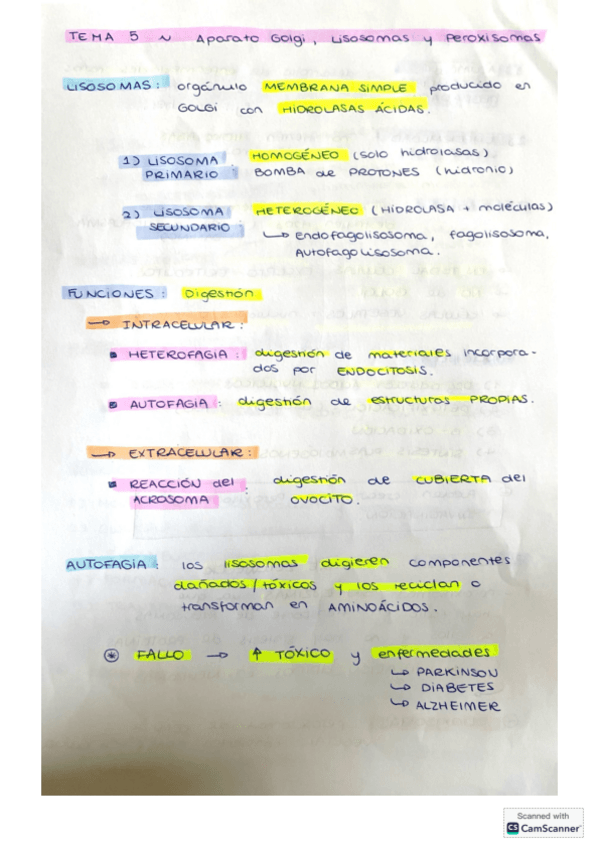 TEMA 5 ~ Aparato Golgi, Lisosomas y Peroxisomas
LISOSOMAS: orgánulo MEMBRANA SIMPLE producido en
GOLGI con HIDROLASAS ÁCIDAS.
1) LISOSOMA HOMOGÉNEO (solo hidrolasas)
PRIMARIO: BOMBA de PROTONES (hidronio)
2) LISOSOMA HETEROGÉNEO (HIDROLASA + moléculas)
SECUNDARIO: ↳ Endofagolisosoma, fagolisosoma,
Autofagolisosoma.
FUNCIONES: Digestión
→ INTRACELULAR:
▪ HETEROFAGIA: digestión de materiales incorpora-
dos por ENDOCITOSIS.
▪ AUTOFAGIA: digestión de estructuras PROPIAS.
→ EXTRACELULAR:
▪ REACCIÓN del digestión de CUBIERTA del
ACROSOMA OVOCITO.
AUTOFAGIA: los lisosomas digieren componentes
dañados/tóxicos y los reciclan o
transforman en AMINOÁCIDOS.
⊛ FALLO → ↑ TÓXICO y enfermedades
↳ PARKINSON
↳ DIABETES
↳ ALZHEIMER
Scanned with
CS CamScanner